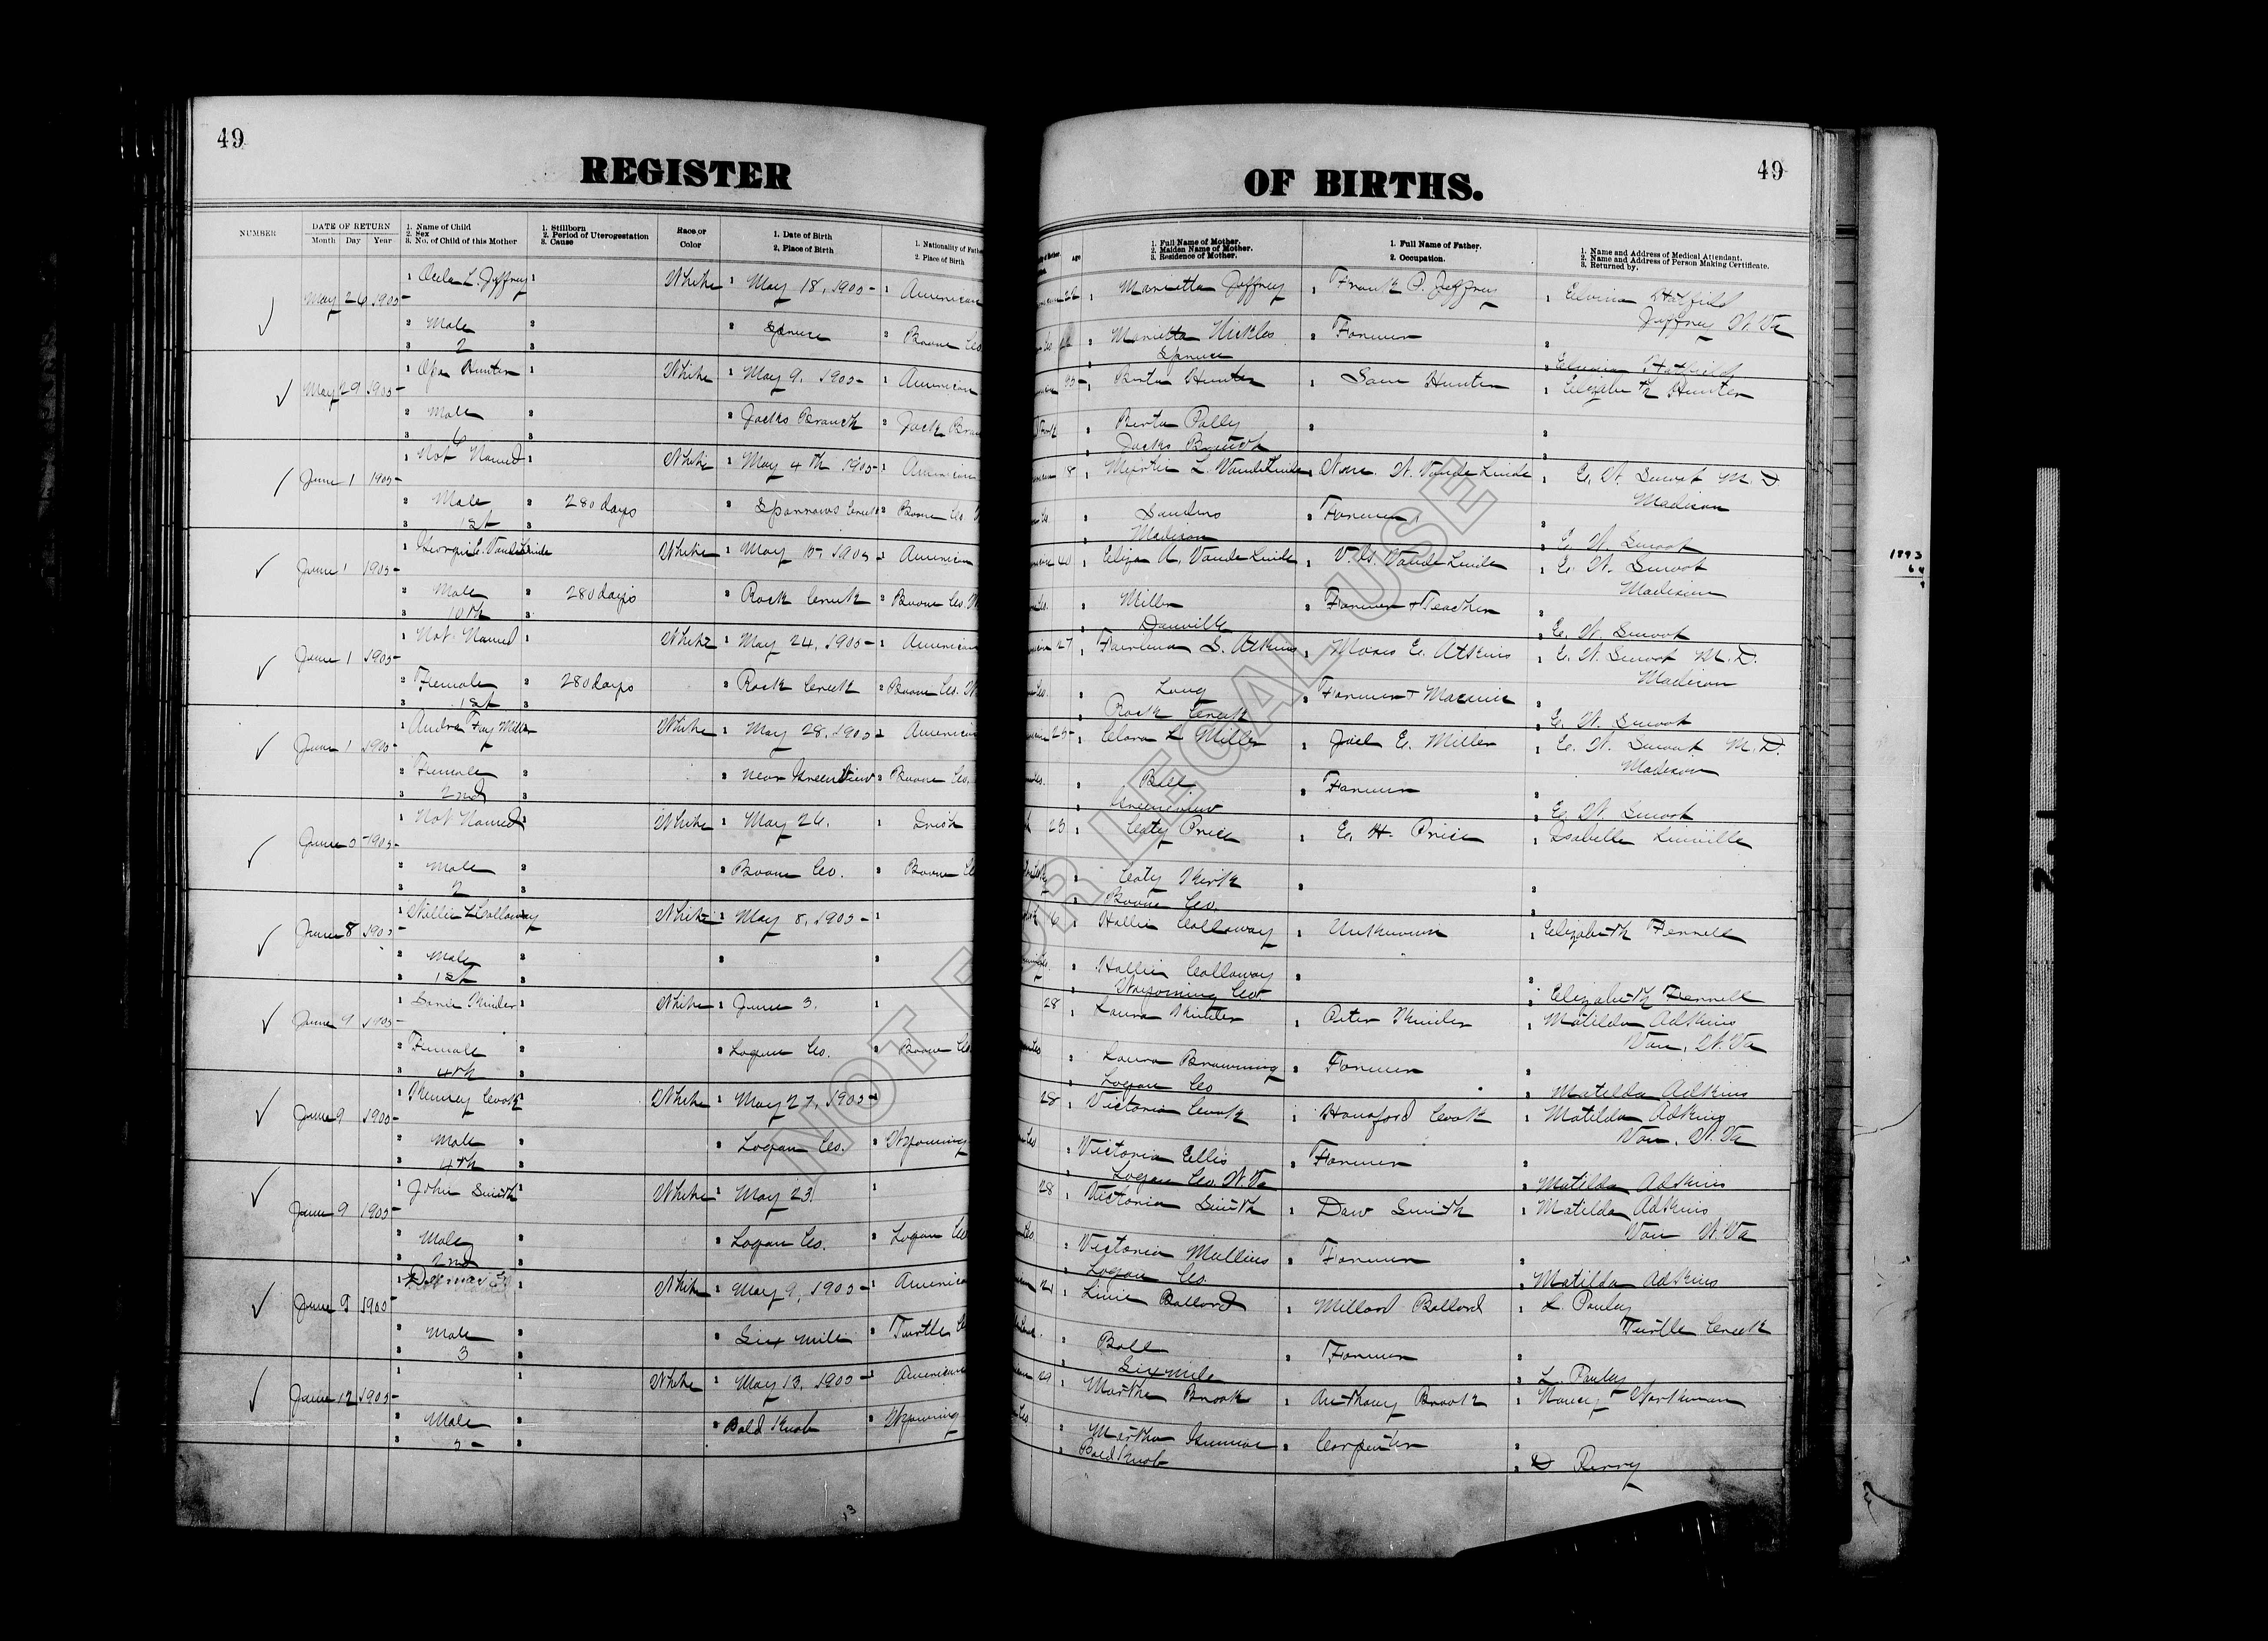 49
REGISTER
OF BIRTHS.
49
NUMBER
DATE OF RETURN
Month Day Year
1. Name of Child
2. Sex
3. No. of Child of this Mother
1. Stillborn
2. Period of Uterogestation
3. Cause
Race or
Color
1. Date of Birth
2. Place of Birth
1. Nationality of Fathe
2. Place of Birth
Age
1. Full Name of Mother.
2. Maiden Name of Mother.
3. Residence of Mother.
1. Full Name of Father.
2. Occupation.
1. Name and Address of Medical Attendant.
2. Name and Address of Person Making Certificate.
3. Returned by.
May 26 1905 L. Jeffrey White May 18, 1905 American 22 Marietta Jeffrey Frank P. Jeffrey Elvina Hatfield
Jeffrey W. Va
Male Spruce Boone Co Marietta Nickles Farmer
2 Spruce Elvina Hatfield
May 29 1905 Opa Hunter White May 9, 1905 American 35 Berta Hunter Sam Hunter Elizabeth Hunter
Male Jacks Branch Jack Bran Berta Polly
6 Jacks Branch
June 1 1905 Not Named White May 4th 1905 American 18 Myrtle L. VandeLinde W. VandeLinde E. W. Smoot M. D
Madison
Male 280 days Sparrows Creek Boone Co. Sanders Farmer
1st Madison E. W. Smoot
June 1 1905 Georgie E. VandeLinde White May 10, 1905 American 40 Eliza A. VandeLinde V. B. VandeLinde E. W. Smoot
Madison
Male 280 days Rock Creek Boone Co. W Miller Farmer + Teacher
10th Danville E. W. Smoot
June 1 1905 Not Named White May 24, 1905 American 27 S. Adkins Moses E. Atkins E. W. Smoot M. D.
Madison
Female 280 days Rock Creek Boone Co. W Long Farmer +
1st Rock Creek E. W. Smoot
June 1 1905 Audra Fay Miller White May 28, 1905 American 25 Clara L Miller Joel E. Miller E. W. Smoot M. D.
Madison
Female Near Greenview Boone Co. Ball Farmer
2nd Greenview E. W. Smoot
June 5 1905 Not Named White May 26, Irish 23 Caty Price E. H. Price Isabelle Linville
Male Boone Co. Boone Co Caty Kirk
2 Boone Co.
June 8 1905 Willie L Calloway White May 8, 1905 Hallie Calloway Unknown Elizabeth Fennell
Male Hallie Calloway
1st Wyoming Co. Elizabeth Fennell
June 9 1905 Kinder White June 3. 28 Laura Kinder Peter Kinder Matilda Adkins
Van, W. Va
Female Logan Co. Boone Co. Laura Browning Farmer
4th Logan Co Matilda Adkins
June 9 1905 Cook White May 27, 1905 28 Victoria Cook Hansford Cook Matilda Adkins
Van, W. Va
Male Logan Co. Wyoming Victoria Ellis Farmer
4th Logan Co. W. Va Matilda Adkins
June 9 1905 John Smith White May 23 28 Victoria Smith Dave Smith Matilda Adkins
Van W. Va
Male Logan Co. Logan Co Victoria Mullins Farmer
2nd Logan Co. Matilda Adkins
June 9 1905 White May 9, 1905 America 21 Ballard Millard Ballard L. Pauley
Turtle Creek
Male Six mile Turtle C Ball Farmer
3 Sixmile L. Pauley
June 12 1905 White May 13, 1905 American 29 Martha Brook Anthony Brook Nancy Workman
Male Bald Knob Wyoming Martha Carpenter
5 Bald Knob D Perry
NOT FOR LEGAL USE
1893